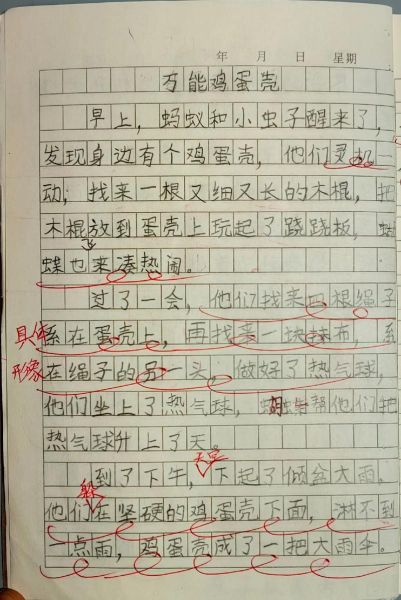 年 月 日 星期
万能鸡蛋壳
早上，蚂蚁和小虫子醒来了，
发现身边有个鸡蛋壳，他们灵机一
动；找来一根又细又长的木棍，把
木棍放到蛋壳上玩起了跷跷板，蝴
飞
蝶也来凑热闹。
过了一会，他们找来四根绳子
具体
系在蛋壳上，再找来一块抹布，系
形象
在绳子的另一头，做好了热气球，
他们坐上了热气球，帮他们把
热气球升上了天。
天空
到了下午，下起了倾盆大雨。
躲
他们在坚硬的鸡蛋壳下面，淋不到
一点雨，鸡蛋壳成了一把大雨伞。